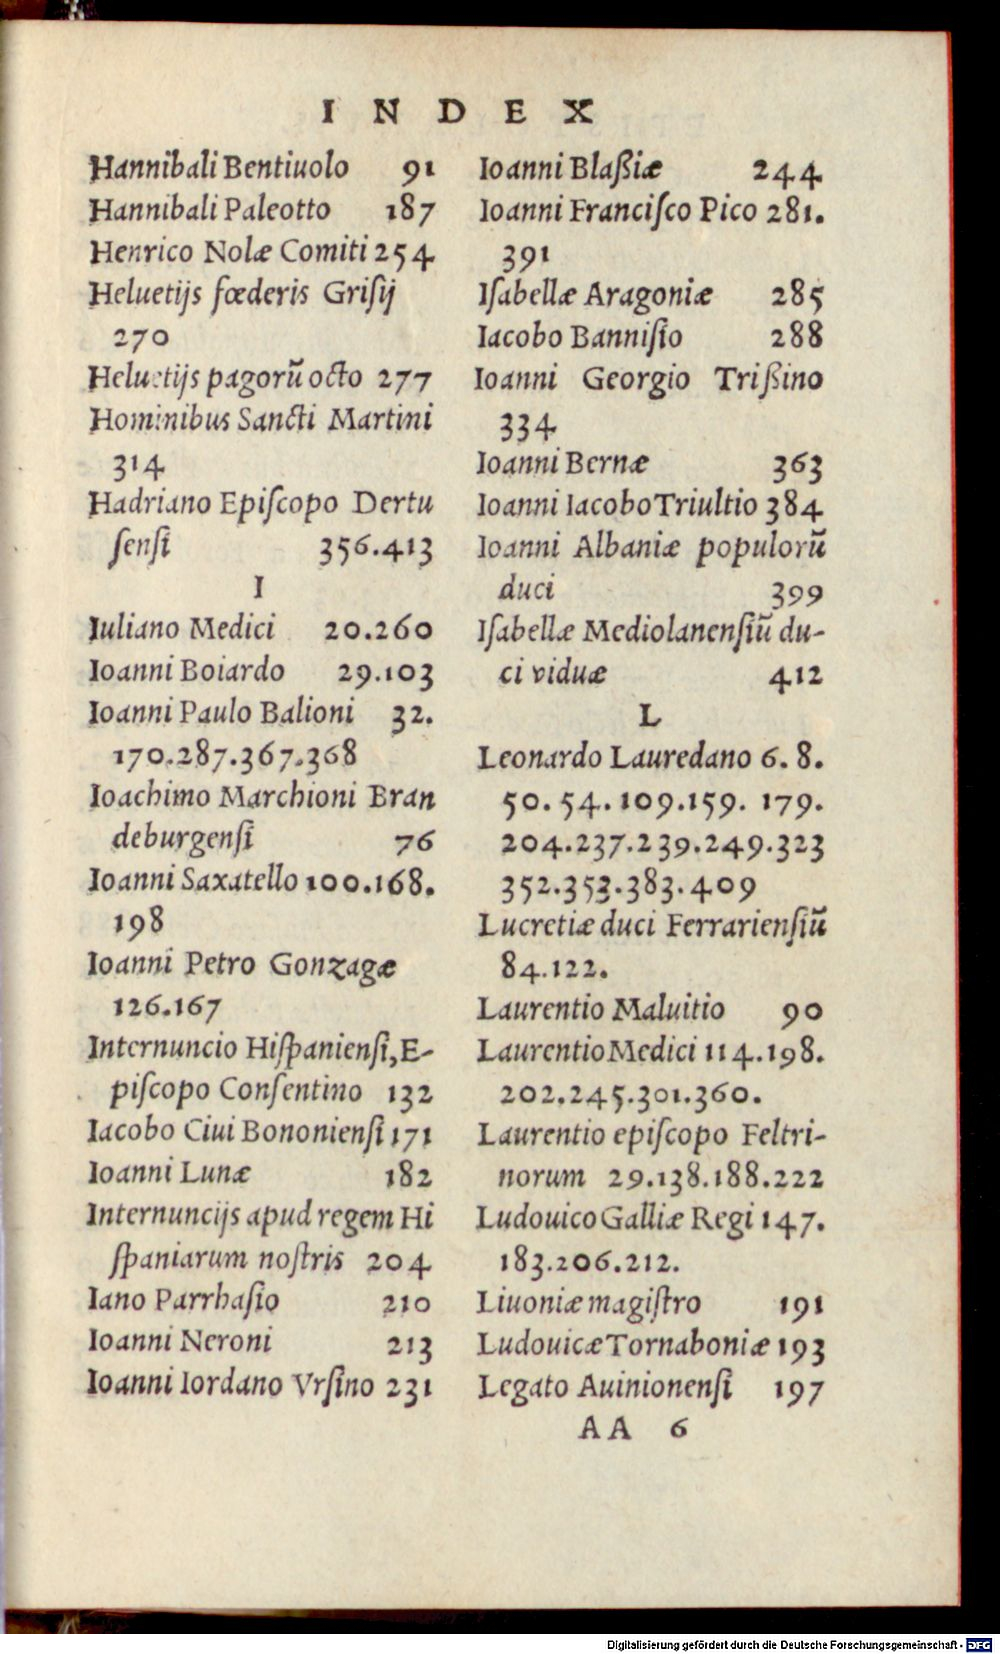 INDEX
Hannibali Bentiuolo 91
Hannibali Paleotto 187
Henrico Nolæ Comiti 254
Heluetijs fœderis Griſij
270
Heluetijs pagorũ octo 277
Hominibus Sancti Martini
314
Hadriano Epiſcopo Dertu
ſenſi 356.413
I
Iuliano Medici 20.260
Ioanni Boiardo 29.103
Ioanni Paulo Balioni 32.
170.287.367.368
Ioachimo Marchioni Bran
deburgenſi 76
Ioanni Saxatello 100.168.
198
Ioanni Petro Gonzagæ
126.167
Internuncio Hiſpanienſi, E-
piſcopo Conſentino 132
Iacobo Ciui Bononienſi 171
Ioanni Lunæ 182
Internuncijs apud regem Hi
ſpaniarum noſtris 204
Iano Parrhaſio 210
Ioanni Neroni 213
Ioanni Iordano Vrſino 231
Ioanni Blaßiæ 244
Ioanni Franciſco Pico 281.
391
Iſabellæ Aragoniæ 285
Iacobo Banniſio 288
Ioanni Georgio Trißino
334
Ioanni Bernæ 363
Ioanni Iacobo Triultio 384
Ioanni Albaniæ populorũ
duci 399
Iſabellæ Mediolanenſiũ du-
ci viduæ 412
L
Leonardo Lauredano 6. 8.
50. 54. 109.159. 179.
204.237.239.249.323
352.353.383.409
Lucretiæ duci Ferrarienſiũ
84.122.
Laurentio Maluitio 90
Laurentio Medici 114.198.
202.245.301.360.
Laurentio epiſcopo Feltri-
norum 29.138.188.222
Ludouico Galliæ Regi 147.
183.206.212.
Liuoniæ magiſtro 191
Ludouicæ Tornaboniæ 193
Legato Auinionenſi 197
AA 6
Digitalisierung gefördert durch die Deutsche Forschungsgemeinschaft - DFG